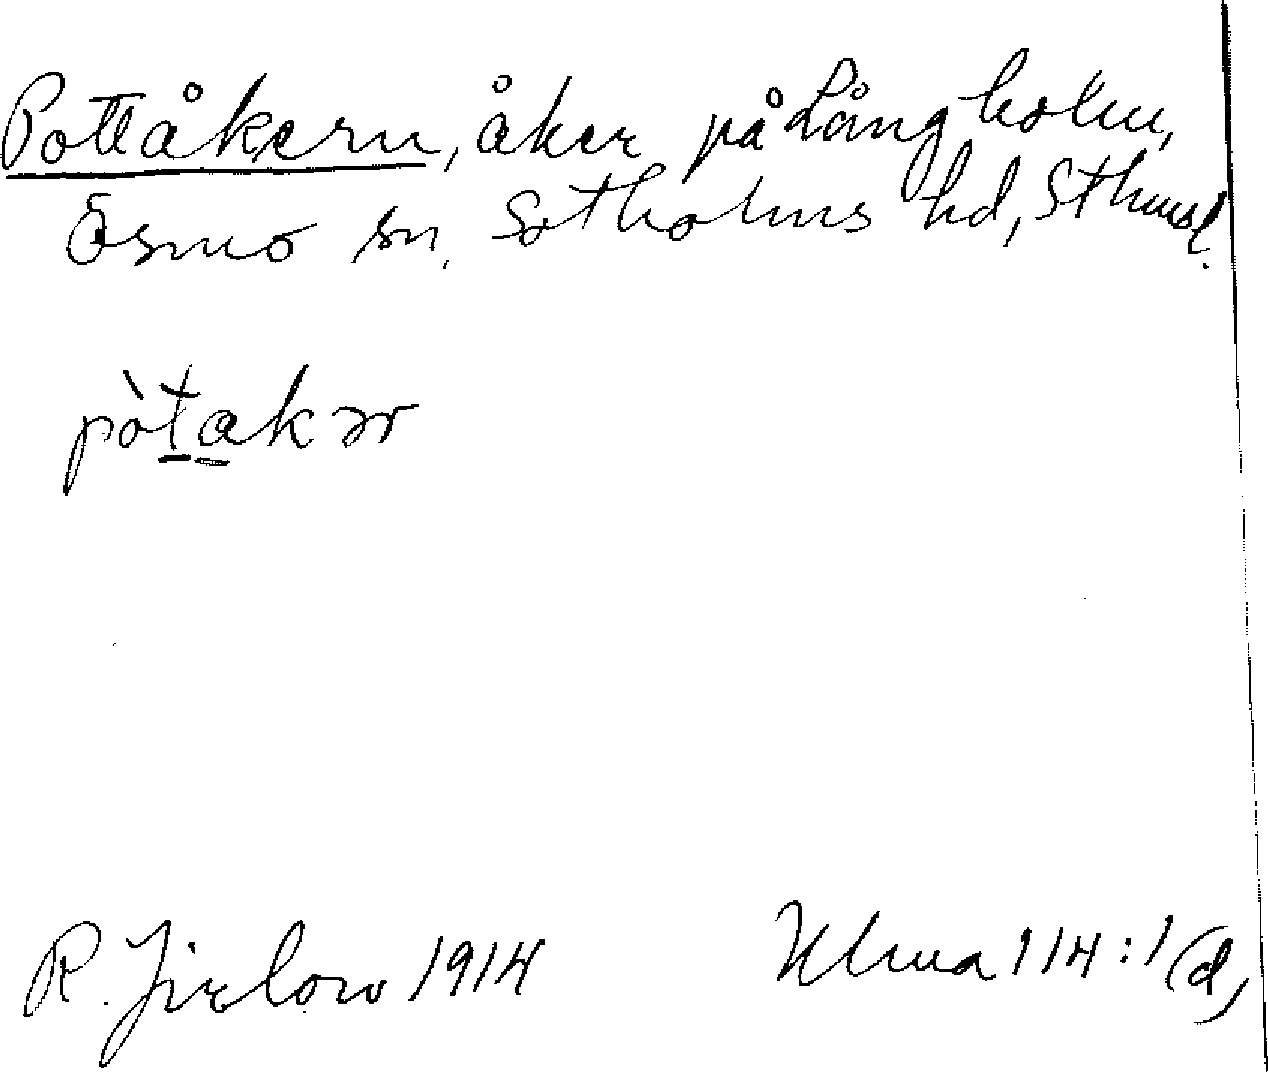 Pottåkern, åker på Långholm,
Ösmo sn, Sotholms hd, Sthmsl.
pòtakər
R. Jirlow 1914
Ulma 114:1(d)